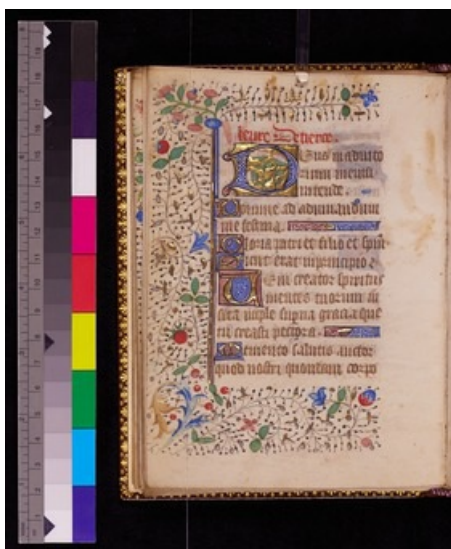 leure De tierce.
Deus in adiuto
rium meum
intende.
Domine ad adiuuandum
me festina.
Gloria patri et filio et spiri
Sicut erat in principio e
Ueni creator spiritus
mentes tuorum ui
sita imple superna gracia que
tu creasti pectora.
Memento salutis auctor
quod nostri quondam corpo